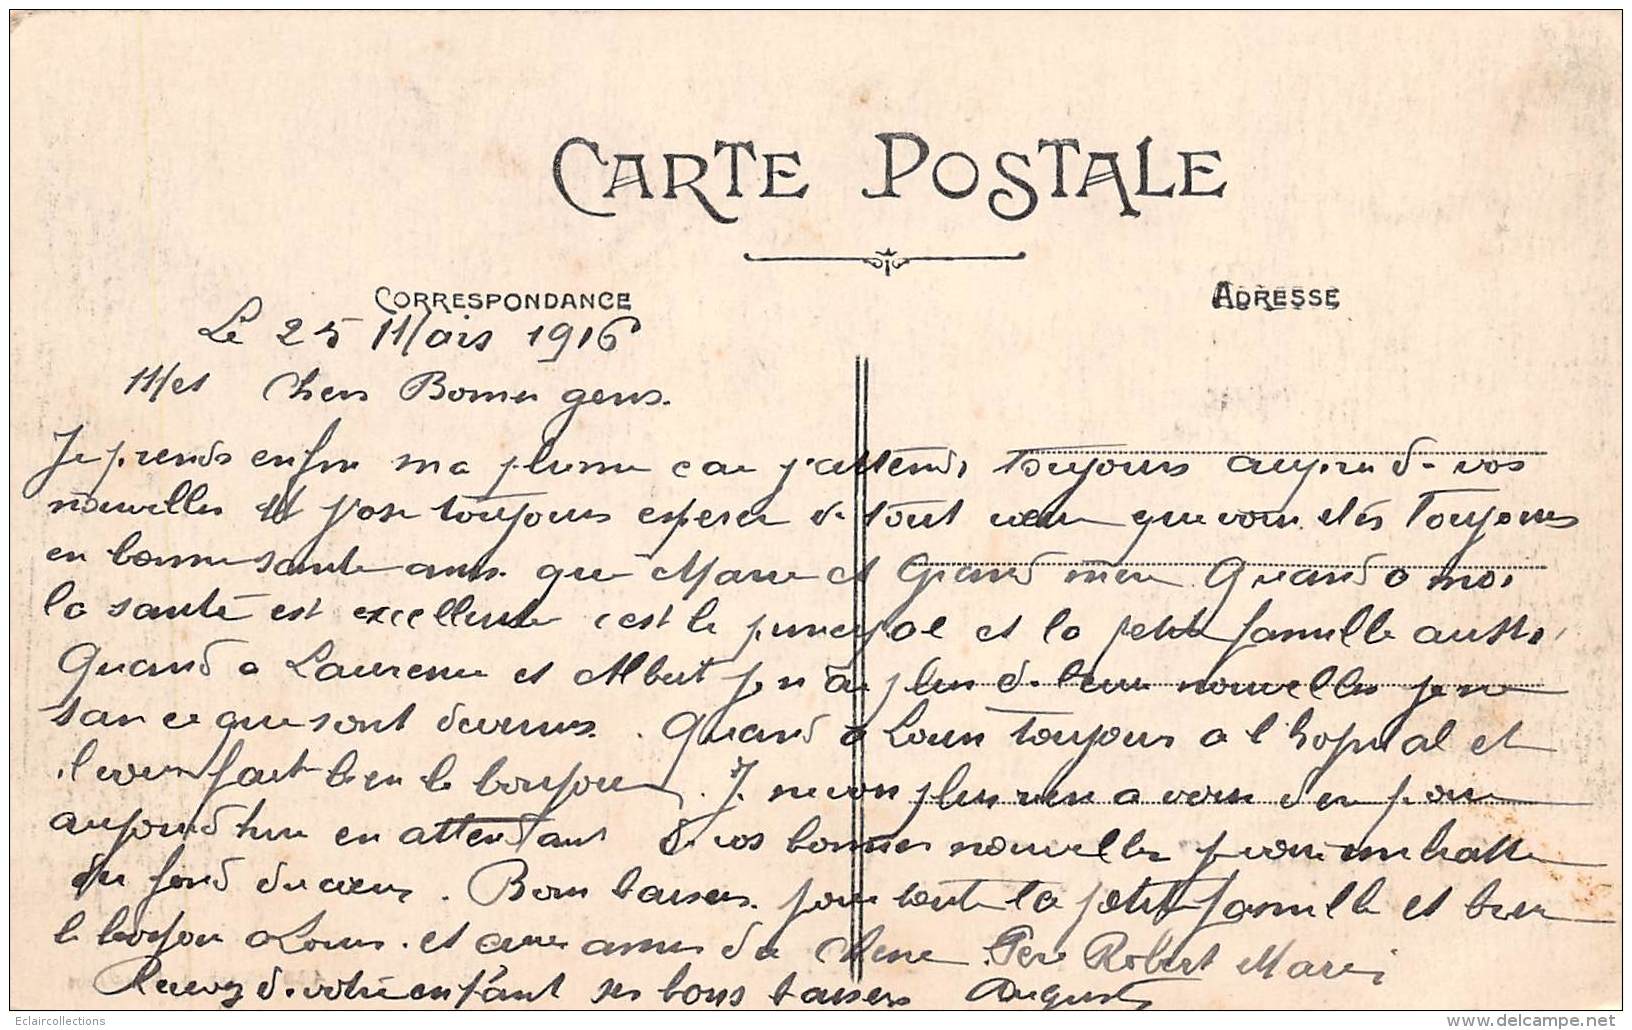 CARTE POSTALE
CORRESPONDANCE
ADRESSE
Le 25 Mars 1916
Mes chers Bonnes gens.
Je prends enfin ma plume car j'attends toujours auprend de vos
nouvelles et j'ose toujours esperer de tout cœur que vous etes Toujours
en bonne sante ainsi que Marie et Grand mère Quand a moi
la santé est excellente c'est le principal et la petite famille aussi,
Quand a Laurence et Albert je n'ai plus de leur nouvelles je ne
sais ce que sont devenus. Quand a Louis toujours a l'hopital et
il vous fait bien le bonjour. Je ne vois plus rien a vous dire pour
aujourd'hui en attendant de vos bonnes nouvelles je vous embrasse
du fond du cœur. Bons baisers pour toute la petite famille et bien
le bonjour a Louis et aux amis du Chene Père Robert Marie
Recevez de votre enfant ses bons baisers Auguste
Eclaircollections
www.delcampe.net